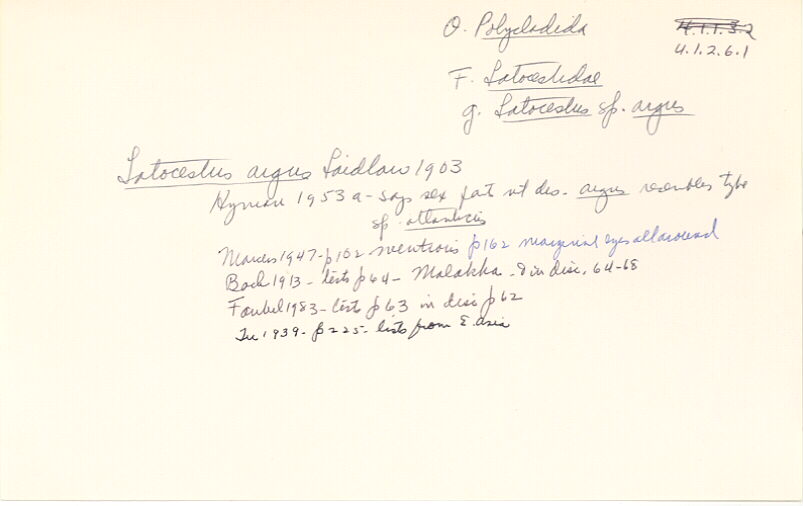 O. Polycladida
4.1.1.3.2
4.1.2.6.1
F. Latocestidae
g. Latocestus sp. argus
Latocestus argus Laidlaw 1903
Hyman 1953a - says sex pat nt des. argus resembles type
sp. atlanticus
Marcus 1947 - p102 mentions p162 marginal eyes all around
Bock 1913 - lists p64 - Malakka - & in disc. 64-68
Faubel 1983 - lists p63 in disc p62
1939 - p225 - lists from E. Asia